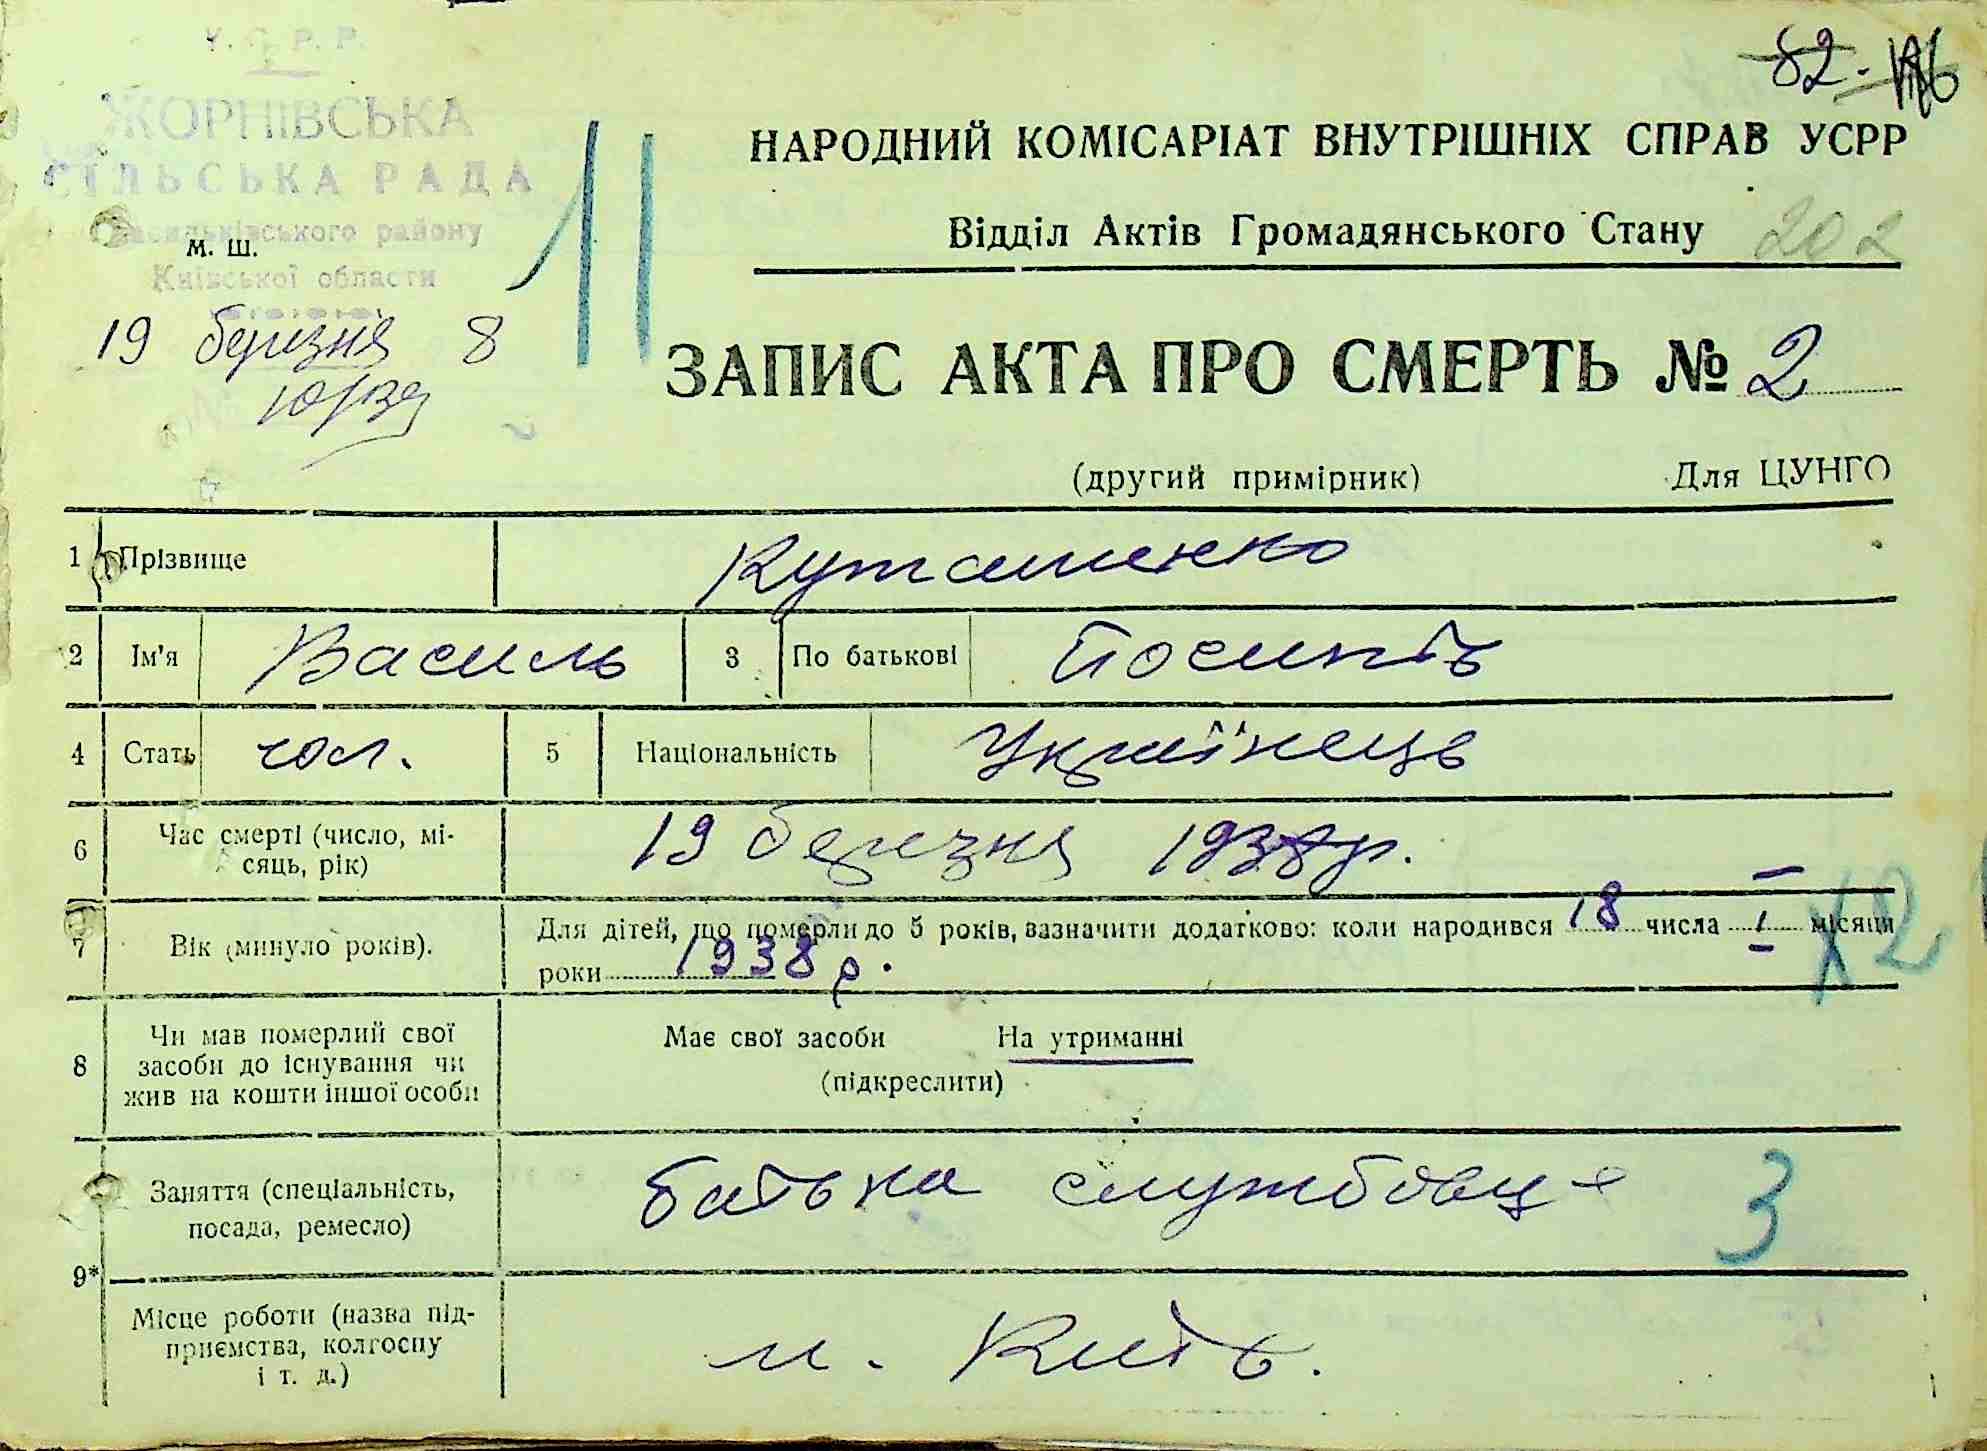 У. С. Р. Р.
ЖОРНІВСЬКА
СІЛЬСЬКА РАДА
Васильківського району
м. ш.
Київської области
19 березня 8
11
82.
НАРОДНИЙ КОМІСАРІАТ ВНУТРІШНІХ СПРАВ УСРР
Відділ Актів Громадянського Стану 202
ЗАПИС АКТА ПРО СМЕРТЬ № 2
(другий примірник) Для ЦУНГО
1 Прізвище Куташенко
2 Ім'я Василь 3 По батькові Йосипів
4 Стать чол. 5 Національність Українець
6 Час смерті (число, мі-
сяць, рік) 19 березня 1938 р.
7 Вік (минуло років). Для дітей, що померли до 5 років, зазначити додатково: коли народився 18 числа I місяця
роки 1938 р.
12
8 Чи мав померлий свої
засоби до існування чи
жив на кошти іншої особи
Має свої засоби На утриманні
(підкреслити)
9* Заняття (спеціальність,
посада, ремесло) батька службовця 3
Місце роботи (назва під-
приємства, колгоспу
і т. д.) м. Київ.